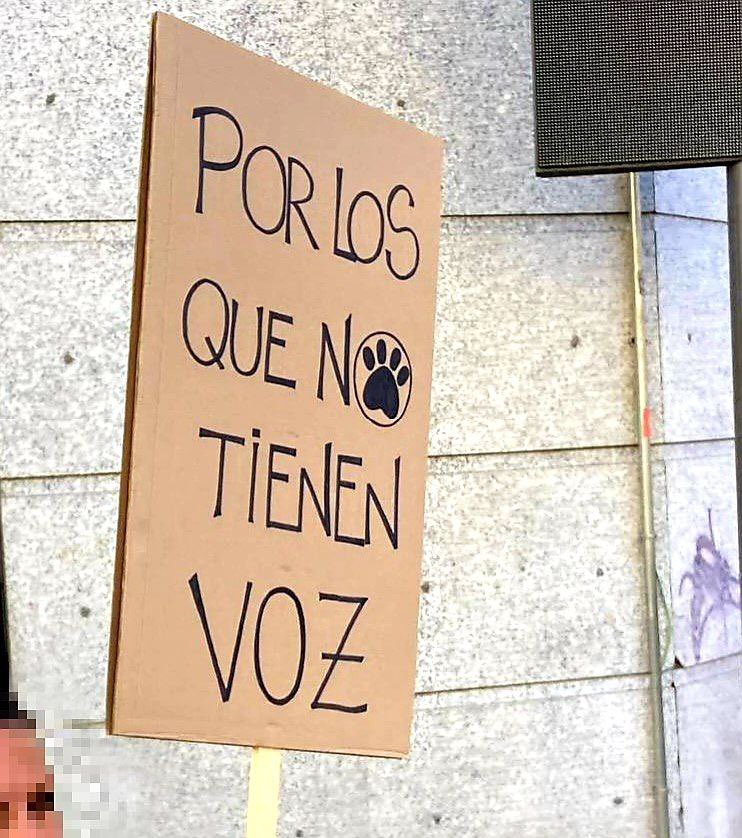 POR LOS
QUE NO
TIENEN
VOZ